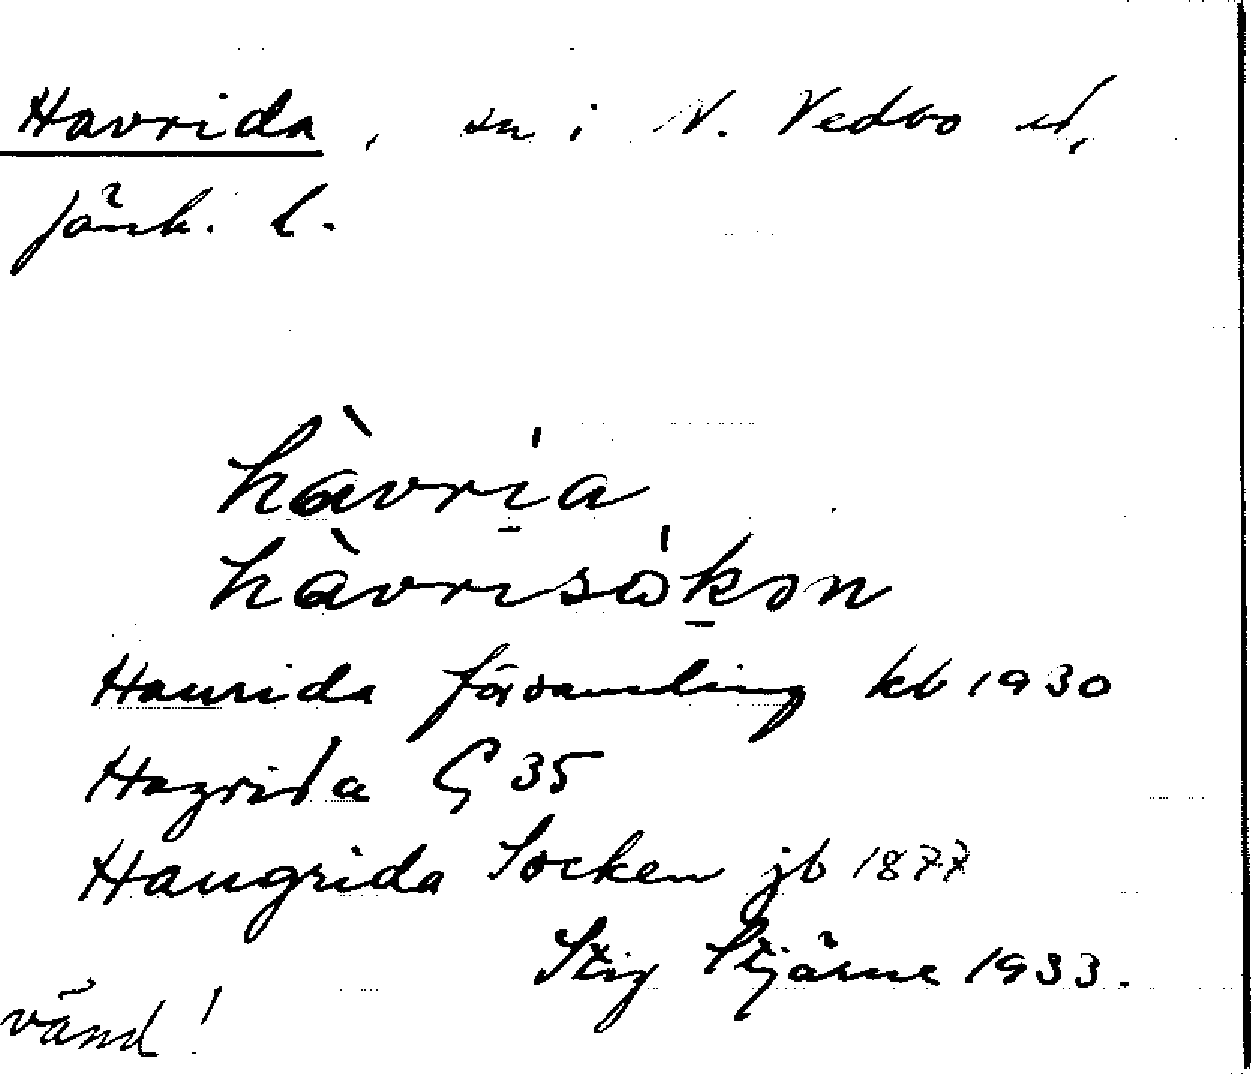 Havrida, sn i N. Vedbo hd,
Jönk. l.
hàvri̠a
hàvrisòk̠ən
Haurida församling kb 1930
Hagrida G 35
Haugrida Socken jb 1877
Stig Stjärne 1933.
vänd!